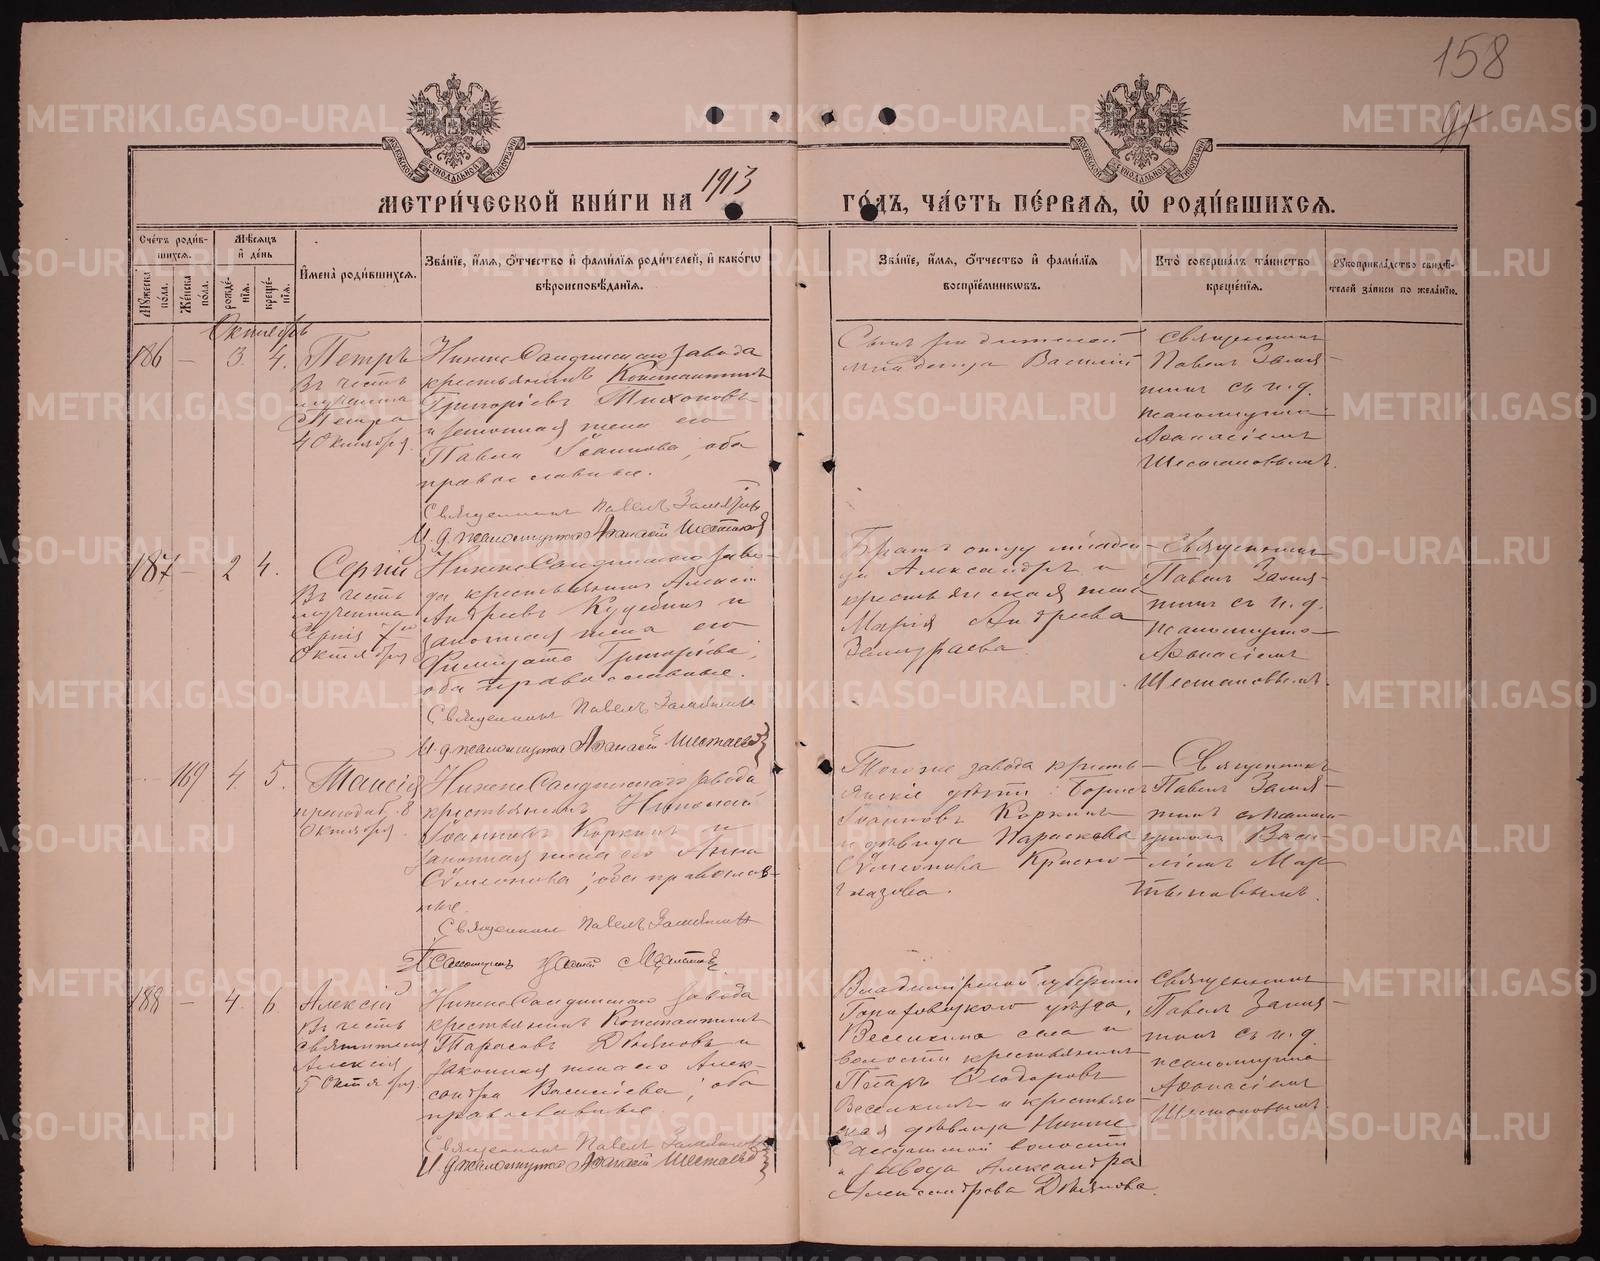 158
91
МЕТРИ́ЧЕСКОЙ КНИ́ГИ НА 1913 ГО́ДЪ, ЧА́СТЬ ПЕ́РВАЯ, Ѡ РОДИ́ВШИХСЯ.
Сче́тъ роди́вшихся.
Му́жеска по́ла.
Же́нска по́ла.
Мѣ́сяцъ и҆ де́нь
рожде́нія.
креще́нія.
И҆мена̀ роди́вшихся.
Зва́ніе, и҆́мя, ѻ҆́тчество и҆ фами́лія роди́телей, и҆ како́гѡ
вѣроисповѣ́данія.
Зва́ніе, и҆́мя, ѻ҆́тчество и҆ фами́лія
воспріе́мниковъ.
Кто̀ соверша́лъ та́инство
креще́нія.
Рукоприкла́дство свидѣ́-
телей за́писи по жела́нію.
Октябрь
186 — 3. 4. Петръ
Въ честь
мученика
Петра
4 Октября.
Нижне Салдинскаго завода
крестьянинъ Константинъ
Григоріевъ Тихоновъ
и законная жена его
Павла Іоаннова, оба
православные.
Священникъ Павелъ Замятинъ
И. д. псаломщика Аѳанасій Шестаковъ
Сынъ родителей
младенца Василій
Священникъ
Павелъ Замя-
тинъ съ и. д.
псаломщика
Аѳанасіемъ
Шестаковымъ.
187 — 2 4. Сергій
Въ честь
мученика
Сергія 7го
Октября
Нижне Салдинскаго заво-
да крестьянинъ Алексій
Андреевъ Кудебинъ и
законная жена его
Григоріева,
оба православные.
Священникъ Павелъ Замятинъ
И. д. псаломщика Аѳанасій Шестаковъ
Братъ отцу младен-
ца Александръ и
крестьянская жена
Марія Андреева
Замураева.
Священникъ
Павелъ Замя-
тинъ съ и. д.
псаломщика
Аѳанасіемъ
Шестаковымъ.
169 4. 5. Таисія
преподоб. 8
Октября
Нижне Салдинскаго завода
крестьянинъ Николай
Іоанновъ Коркинъ и
законная жена его Анна
Сѵмеонова; оба православ-
ные.
Священникъ Павелъ Замятинъ
Псаломщикъ
Того же завода кресть-
янскіе дѣти: Борисъ
Іоанновъ Коркинъ
и дѣвица Параскева
Сѵмеонова Красно-
глазова.
Священникъ
Павелъ Замя-
тинъ съ псалом-
щикомъ Васи-
ліемъ Мар-
тыновымъ.
188 — 4. 6. Алексій
Въ честь
святителя
Алексія
5 Октября
Нижне Салдинскаго завода
крестьянинъ Константинъ
Тарасовъ Дьяковъ и
законная жена его Алек-
сандра Василіева; оба
православные.
Священникъ Павелъ Замятинъ
И. д. псаломщика Аѳанасій Шестаковъ
Владимірской губерніи
Гороховецкаго уѣзда,
Веселкина села и
волости крестьянинъ
Петръ Ѳеодоровъ
Веселкинъ и крестьян-
ская дѣвица Нижне
Салдинской волости
и завода Александра
Александрова Дьякова.
Священникъ
Павелъ Замя-
тинъ съ и. д.
псаломщика
Аѳанасіемъ
Шестаковымъ
METRIKI.GASO-URAL.RU